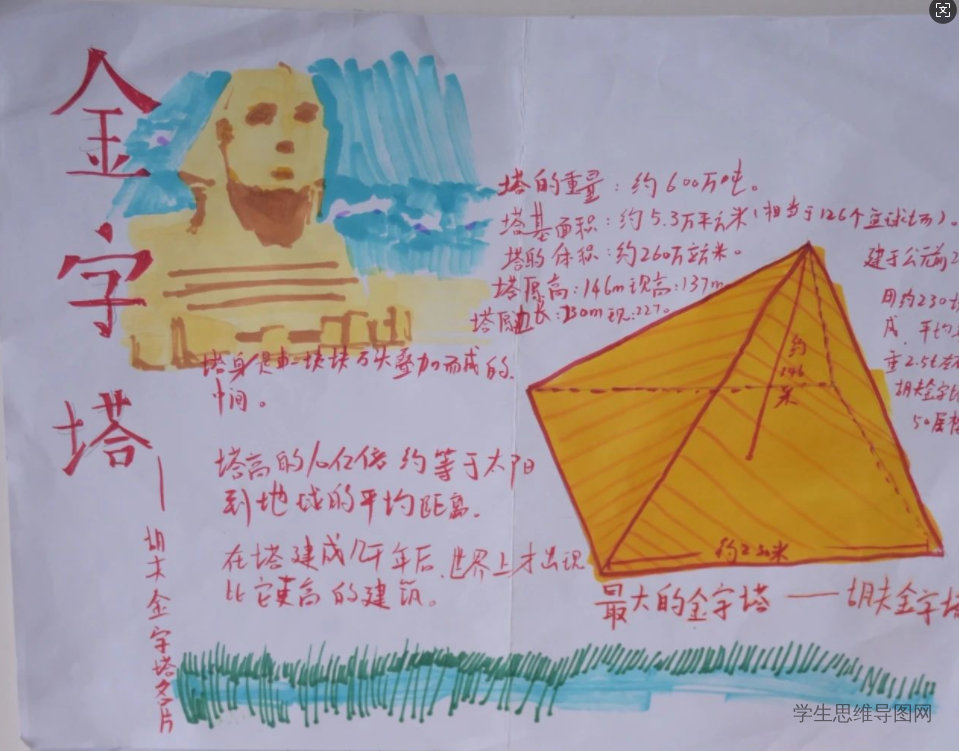 金字塔
——胡夫金字塔名片
塔的重量：约600万吨。
塔基面积：约5.3万平方米（相当于126个
塔的体积：约260万立方米。
塔原高：146m现高：137m
塔原边长：230m现：227。
建于公元前2
用约230块
成，平均
重2.5t左右
胡夫金字塔
50层楼
塔身是由一块块石头叠加而成的
中间。
塔高的10亿倍约等于太阳
到地球的平均距离。
在塔建成几千年后，世界上才出现
比它更高的建筑。
约
146
米
约230米
最大的金字塔——胡夫金字塔
学生思维导图网